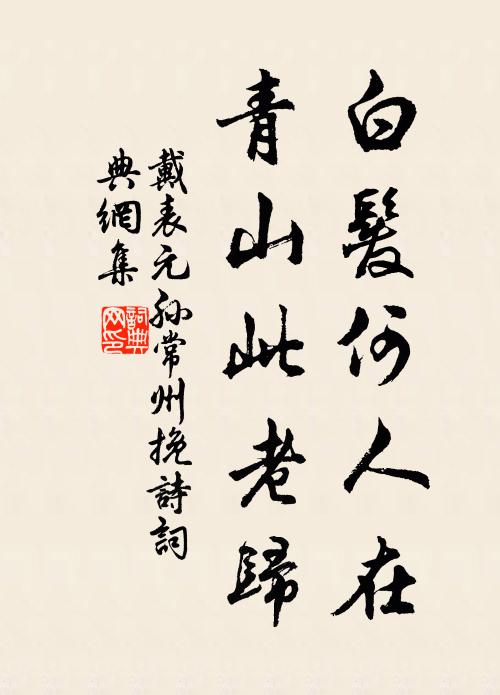 白髮何人在
青山此老歸
戴表元孫常州挽詩詞
典網集
詞典
网印